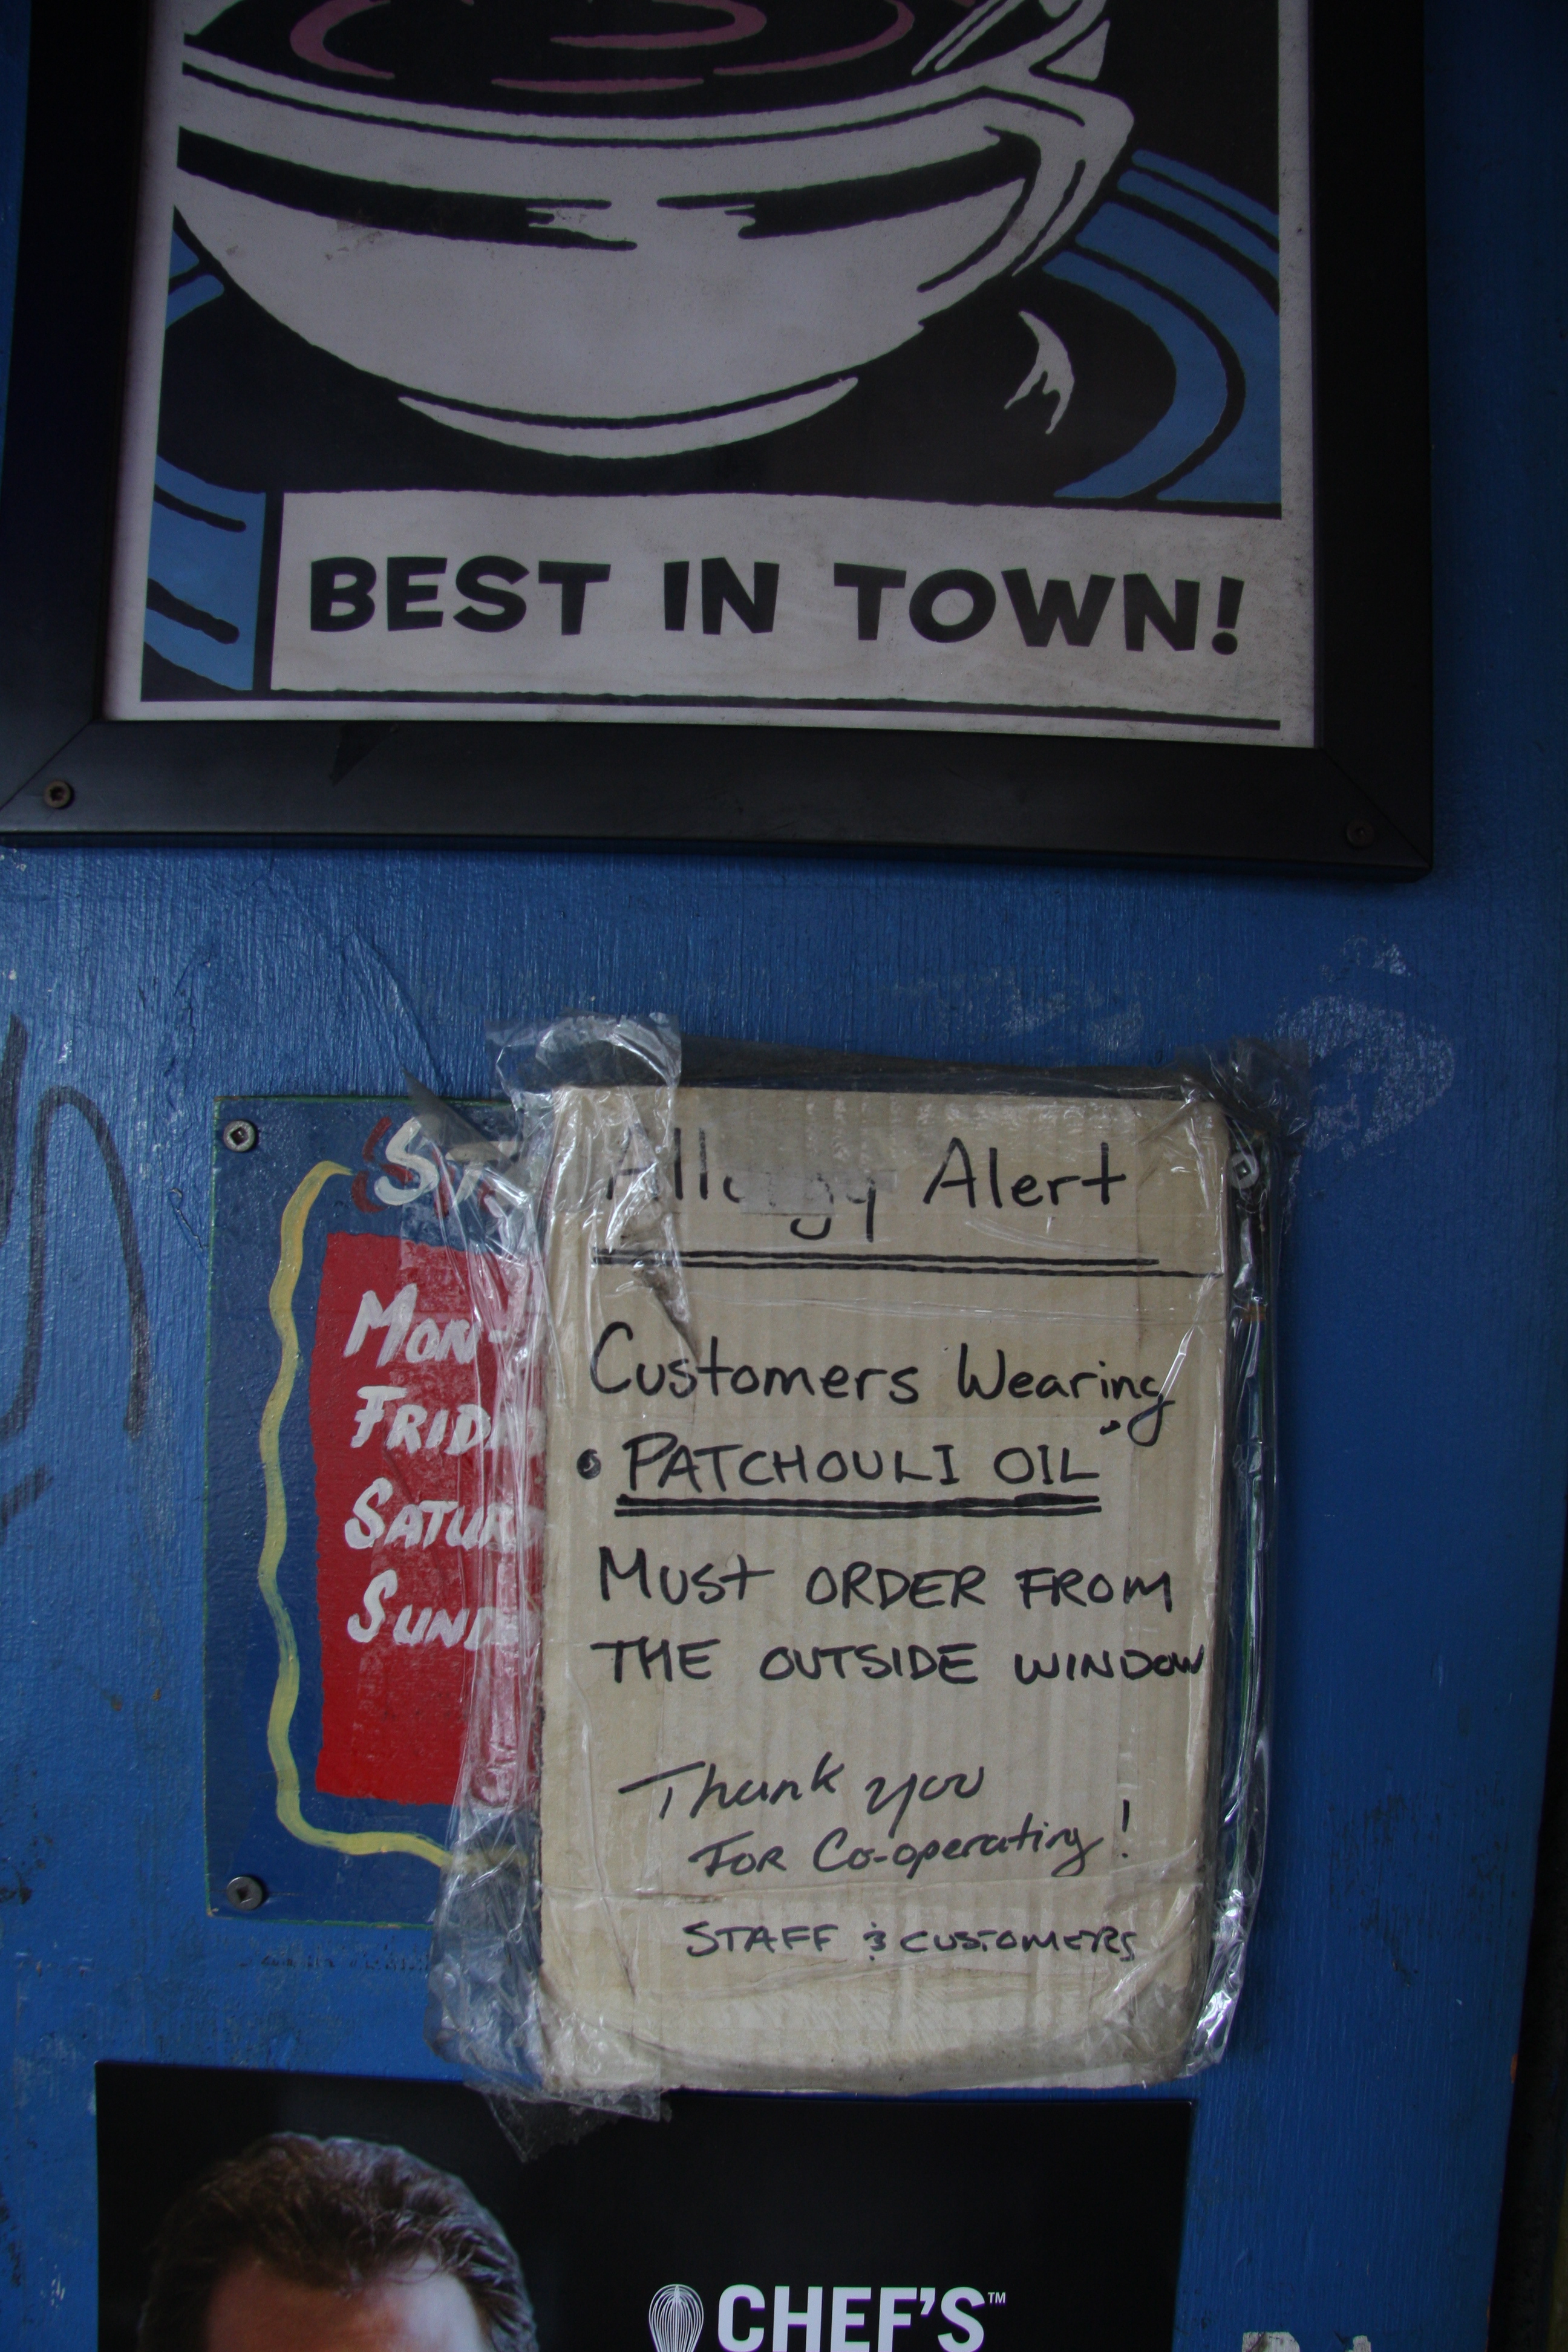 BEST IN TOWN!
Allergy Alert
Customers Wearing
• PATCHOULI OIL
MUST ORDER FROM
THE OUTSIDE WINDOW
Thank you
FOR Co-operating!
STAFF & CUSTOMERS
ST
MON-
FRID
SATUR
SUND
CHEF'S™